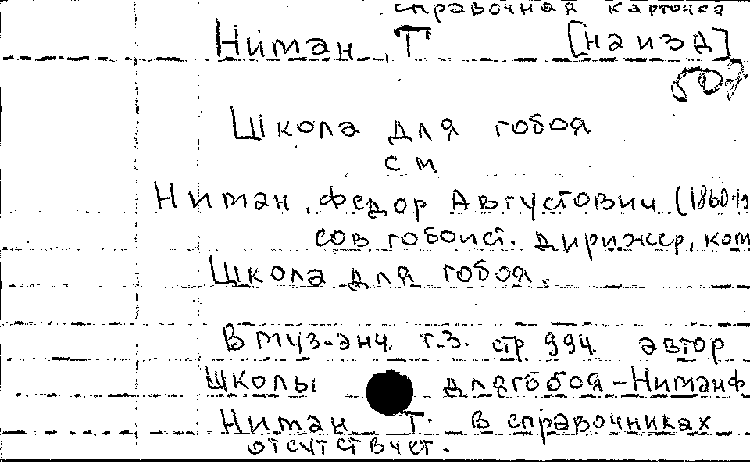 справочная карточка
Ниман, Т [на изд]
Школа для гобоя
см
Ниман, Федор Августович (1860-19
сов гобоист. дирижер, ком
Школа для гобоя.
В муз-энц. т.3. стр 994 автор
Школы для гобоя - Ниман Ф
Ниман Т. в справочниках
отсутствует.